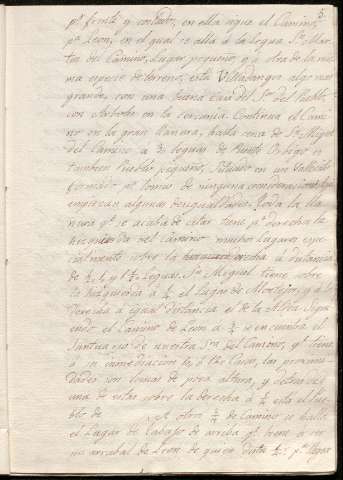 5.
pr. frente y costado, en ella sigue el Camino,
pa. Leon, en el qual se alla á la legua Sn. Mar-
tin del Camino, Lugar pequeño, y á otra de la mis-
ma especie de terreno, esta Villadangos algo mas
grande, con una buena Casa del Sor. del Pueblo,
con Arboles en la cercania. Continua el Cami-
no en la gran llanura, hasta cerca de Sn. Miguel
del Camino á 3 leguas de Puente Orbigo es
tambien Pueblo pequeño, situado en un Vallecito
formado pr. lomas de ninguna consideracion
empiezan algunas desigualdades. Toda la lla-
nura qe. se acaba de citar tiene pr. derecha é
hizquierda del Camino muchos lugares espe-
cialmente sobre la derecha á distancia
de ½, 1, y 1½ Leguas. Sn. Miguel tiene sobre
la hizquierda á ¼ el lugar de Montejos, y á la
derecha á igual distancia el de la Aldea. Sigui-
endo el Camino de Leon á ¼ se encuentra el
Santuario de nuestra Sra. del Camino, qe. tiene
á su inmediacion 10, ó 12 Casas, las proximi-
dades son lomas de poca altura, y detras de
una de estas sobre la derecha á ¼ esta el pue-
blo de á otro ¼ de Camino se halla
el Lugar de Trabajo de arriba qe. tiene á
un arrabal de Leon de quien dista ½: pa. llegar